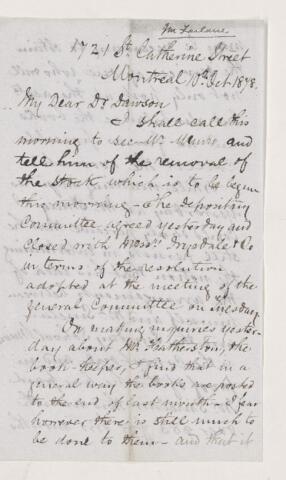 McFarlane
721 St Catherine Street
Montreal 10th Oct 1878.
My Dear Dr Dawson
I shall call this
morning to see Mr. Muir and
tell him of the removal of
the stock, which is to be begun
this morning - The Depositing
Committee agreed yesterday and
closed with Messrs Drysdale & Co
in terms of the resolution
adopted at the meeting of the
general Committee on Tuesday
On making inquiries yester-
day about Mr. Featherston, the
book-keeper, I find that in a
general way the books are posted
to the end of last month - I fear
however there is still much to
be done to them - and that it